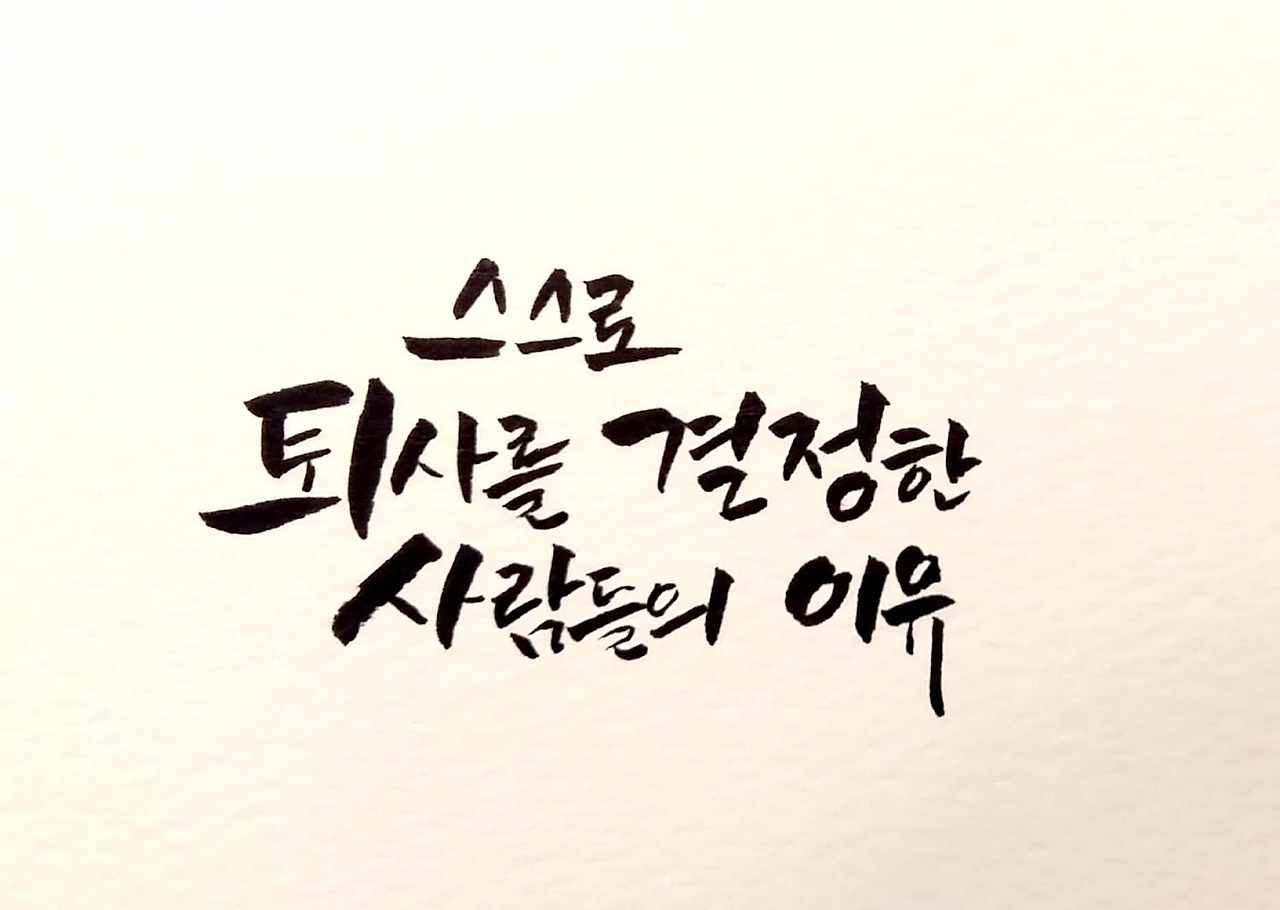 스스로
퇴사를 결정한
사람들의 이유